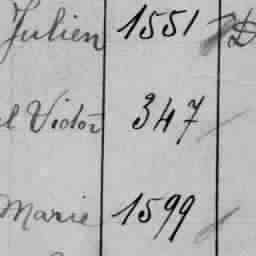 Julien 1551 D
l Victor 347
Marie 1599